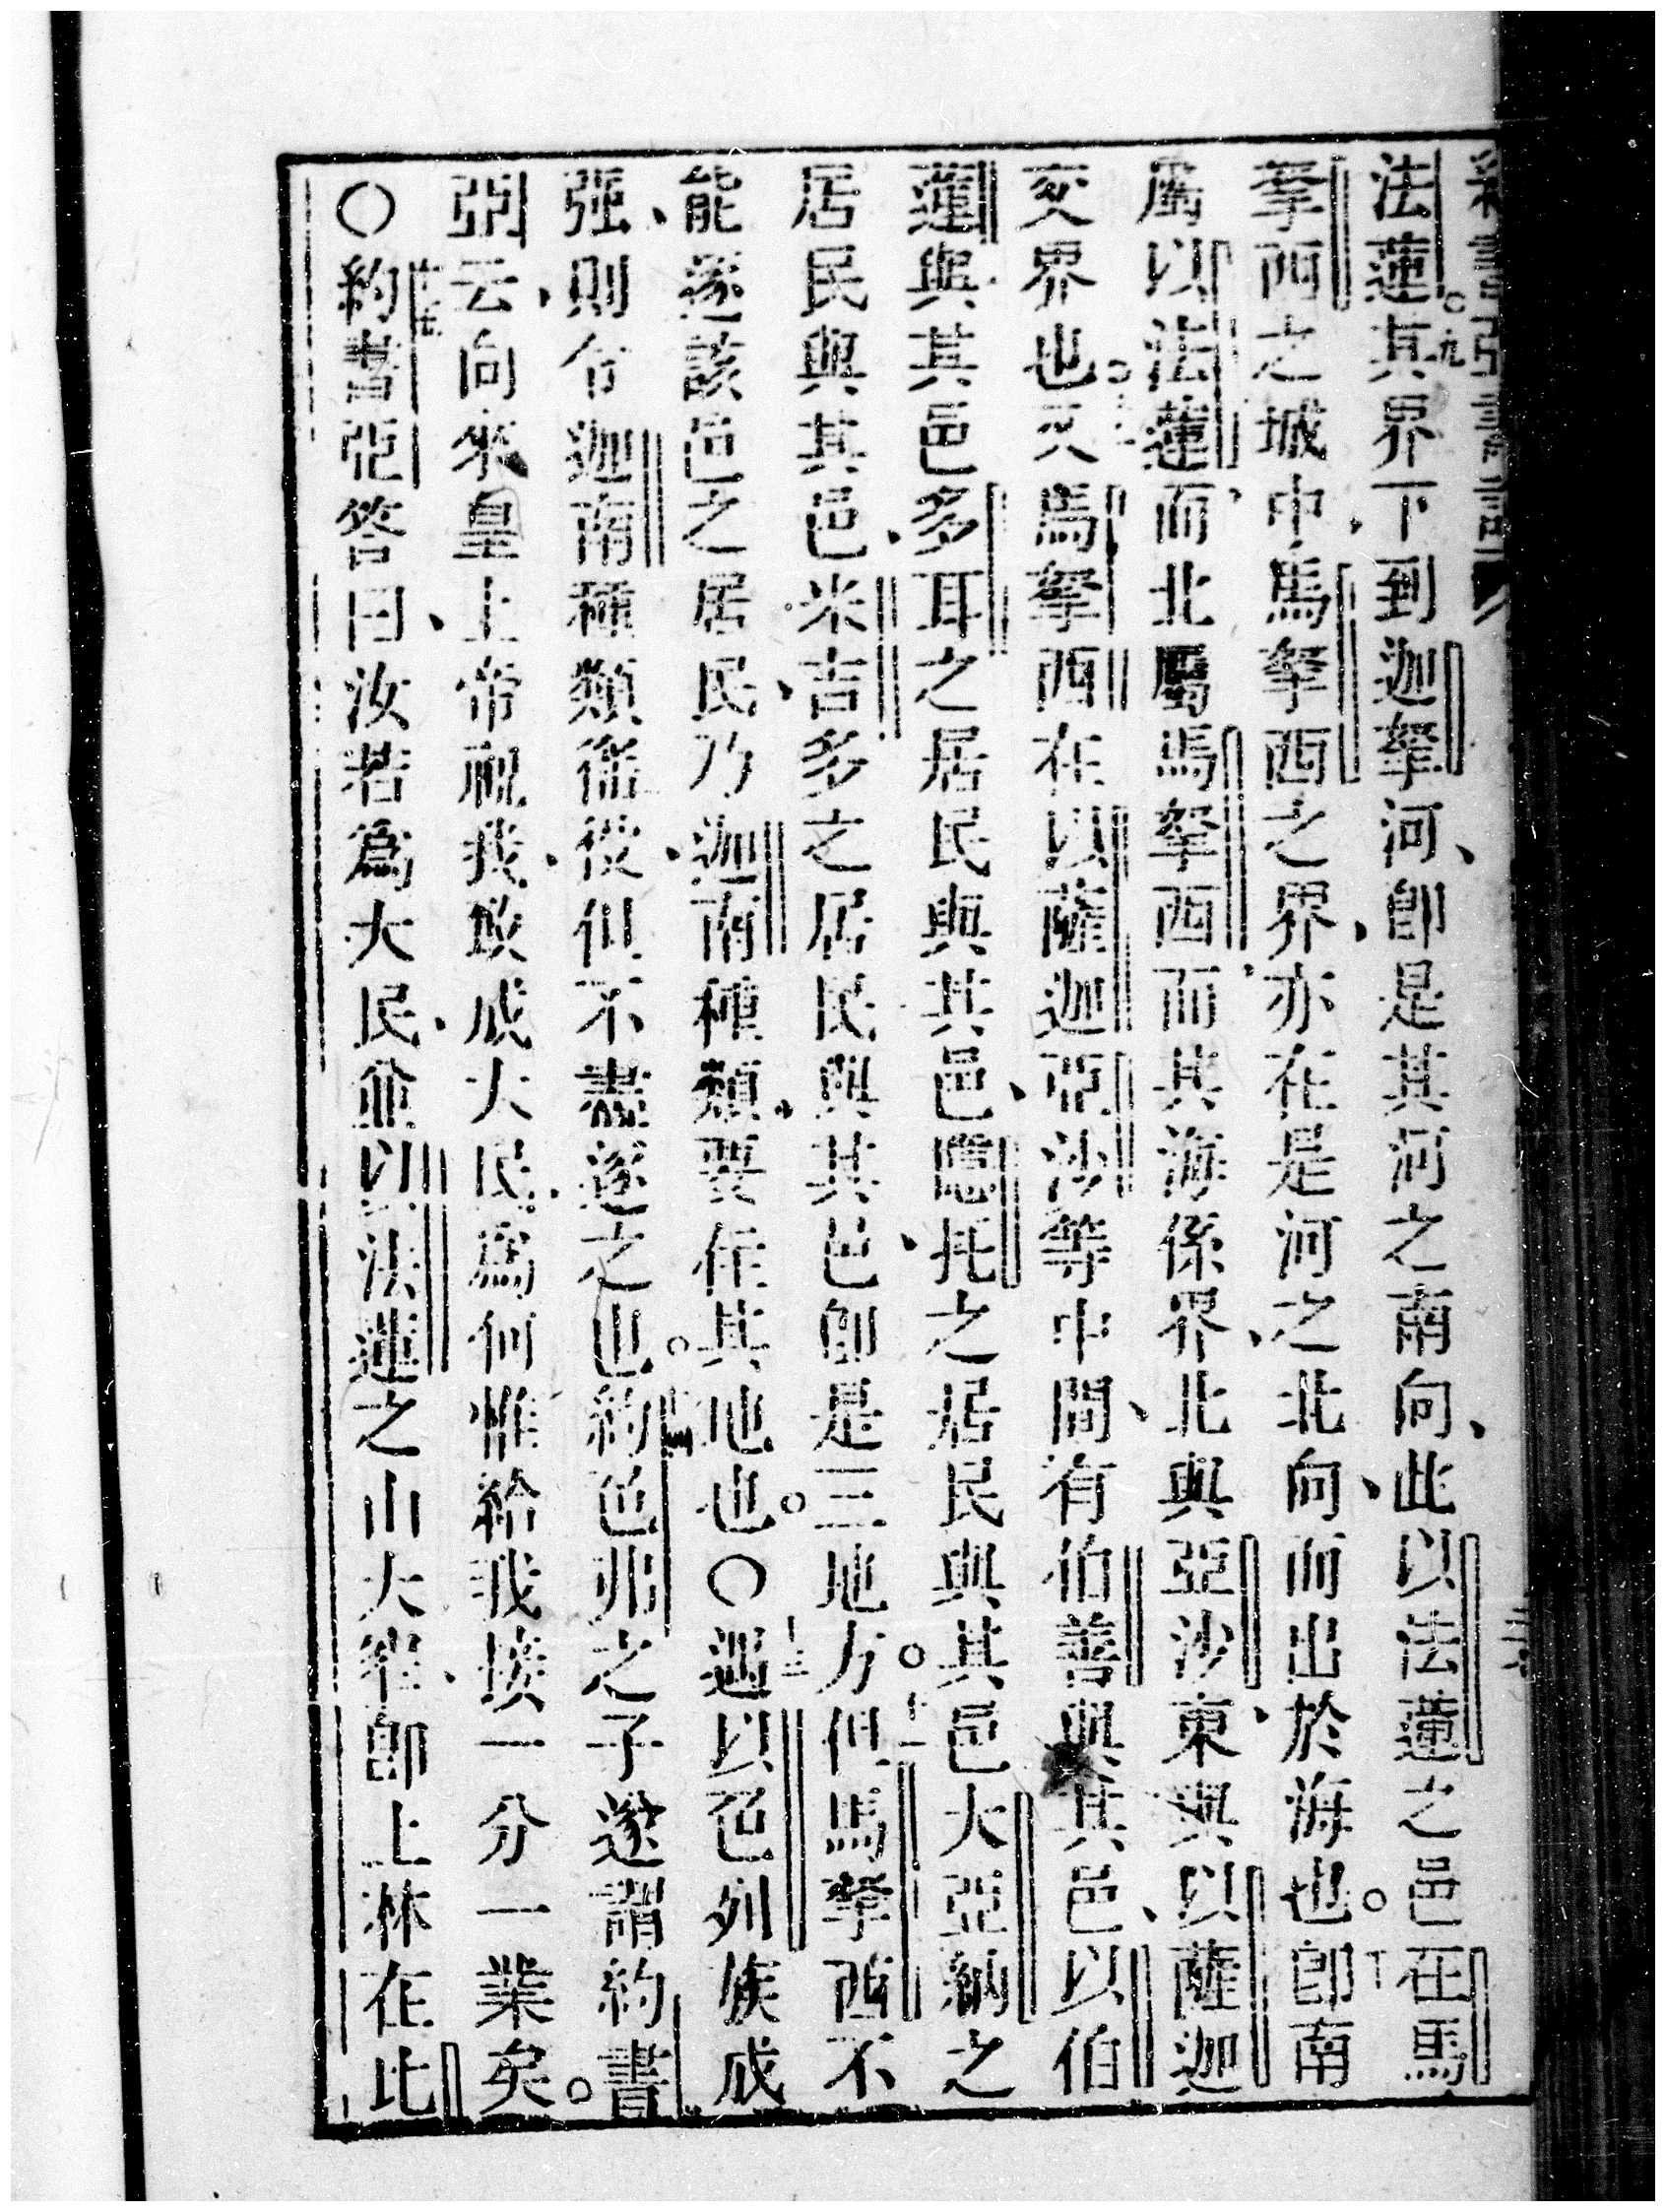 法蓮。九其界下到迦拏河、卽是其河之南向、此以法蓮之邑在馬
拏西之城中、馬拏西之界、亦在是河之北向、而出於海也。十卽南
屬以法蓮、而北屬馬拏西、而其海係界、北與亞沙、東與以薩迦
交界也。又馬拏西在以薩迦亞沙等中間、有伯善與其邑、以伯
蓮與其邑、多耳之居民與其邑、隱托之居民與其邑大亞納之
居民與其邑、米吉多之居民與其邑、卽是三地方。十二但馬拏西不
能逐該邑之居民、乃迦南種類、要住其地也。〇十三遇以色列族成
強、則令迦南種類徭役、但不盡逐之也。約色弗之子遂謂約書
亞云、向來皇上帝祝我、致成大民、爲何惟給我埃一分一業矣。
〇十五約書亞答曰、汝若爲大民、並以法蓮之山大窄、卽上林在比